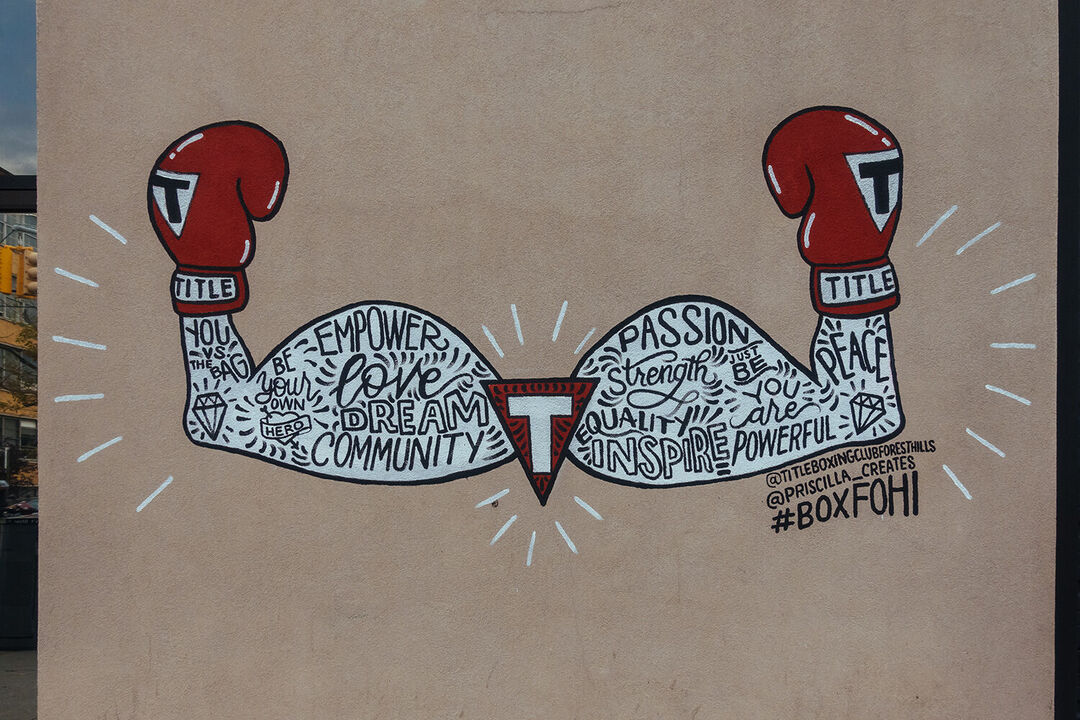 T
TITLE
YOU
VS
THE
BAG
BE
YOUR
OWN
HERO
EMPOWER
love
DREAM
COMMUNITY
T
PASSION
Strength
EQUALITY
INSPIRE
JUST
BE
YOU
are
POWERFUL
PEACE
T
TITLE
@TITLEBOXINGCLUBFORESTHILLS
@PRISCILLA_CREATES
#BOXFOHI